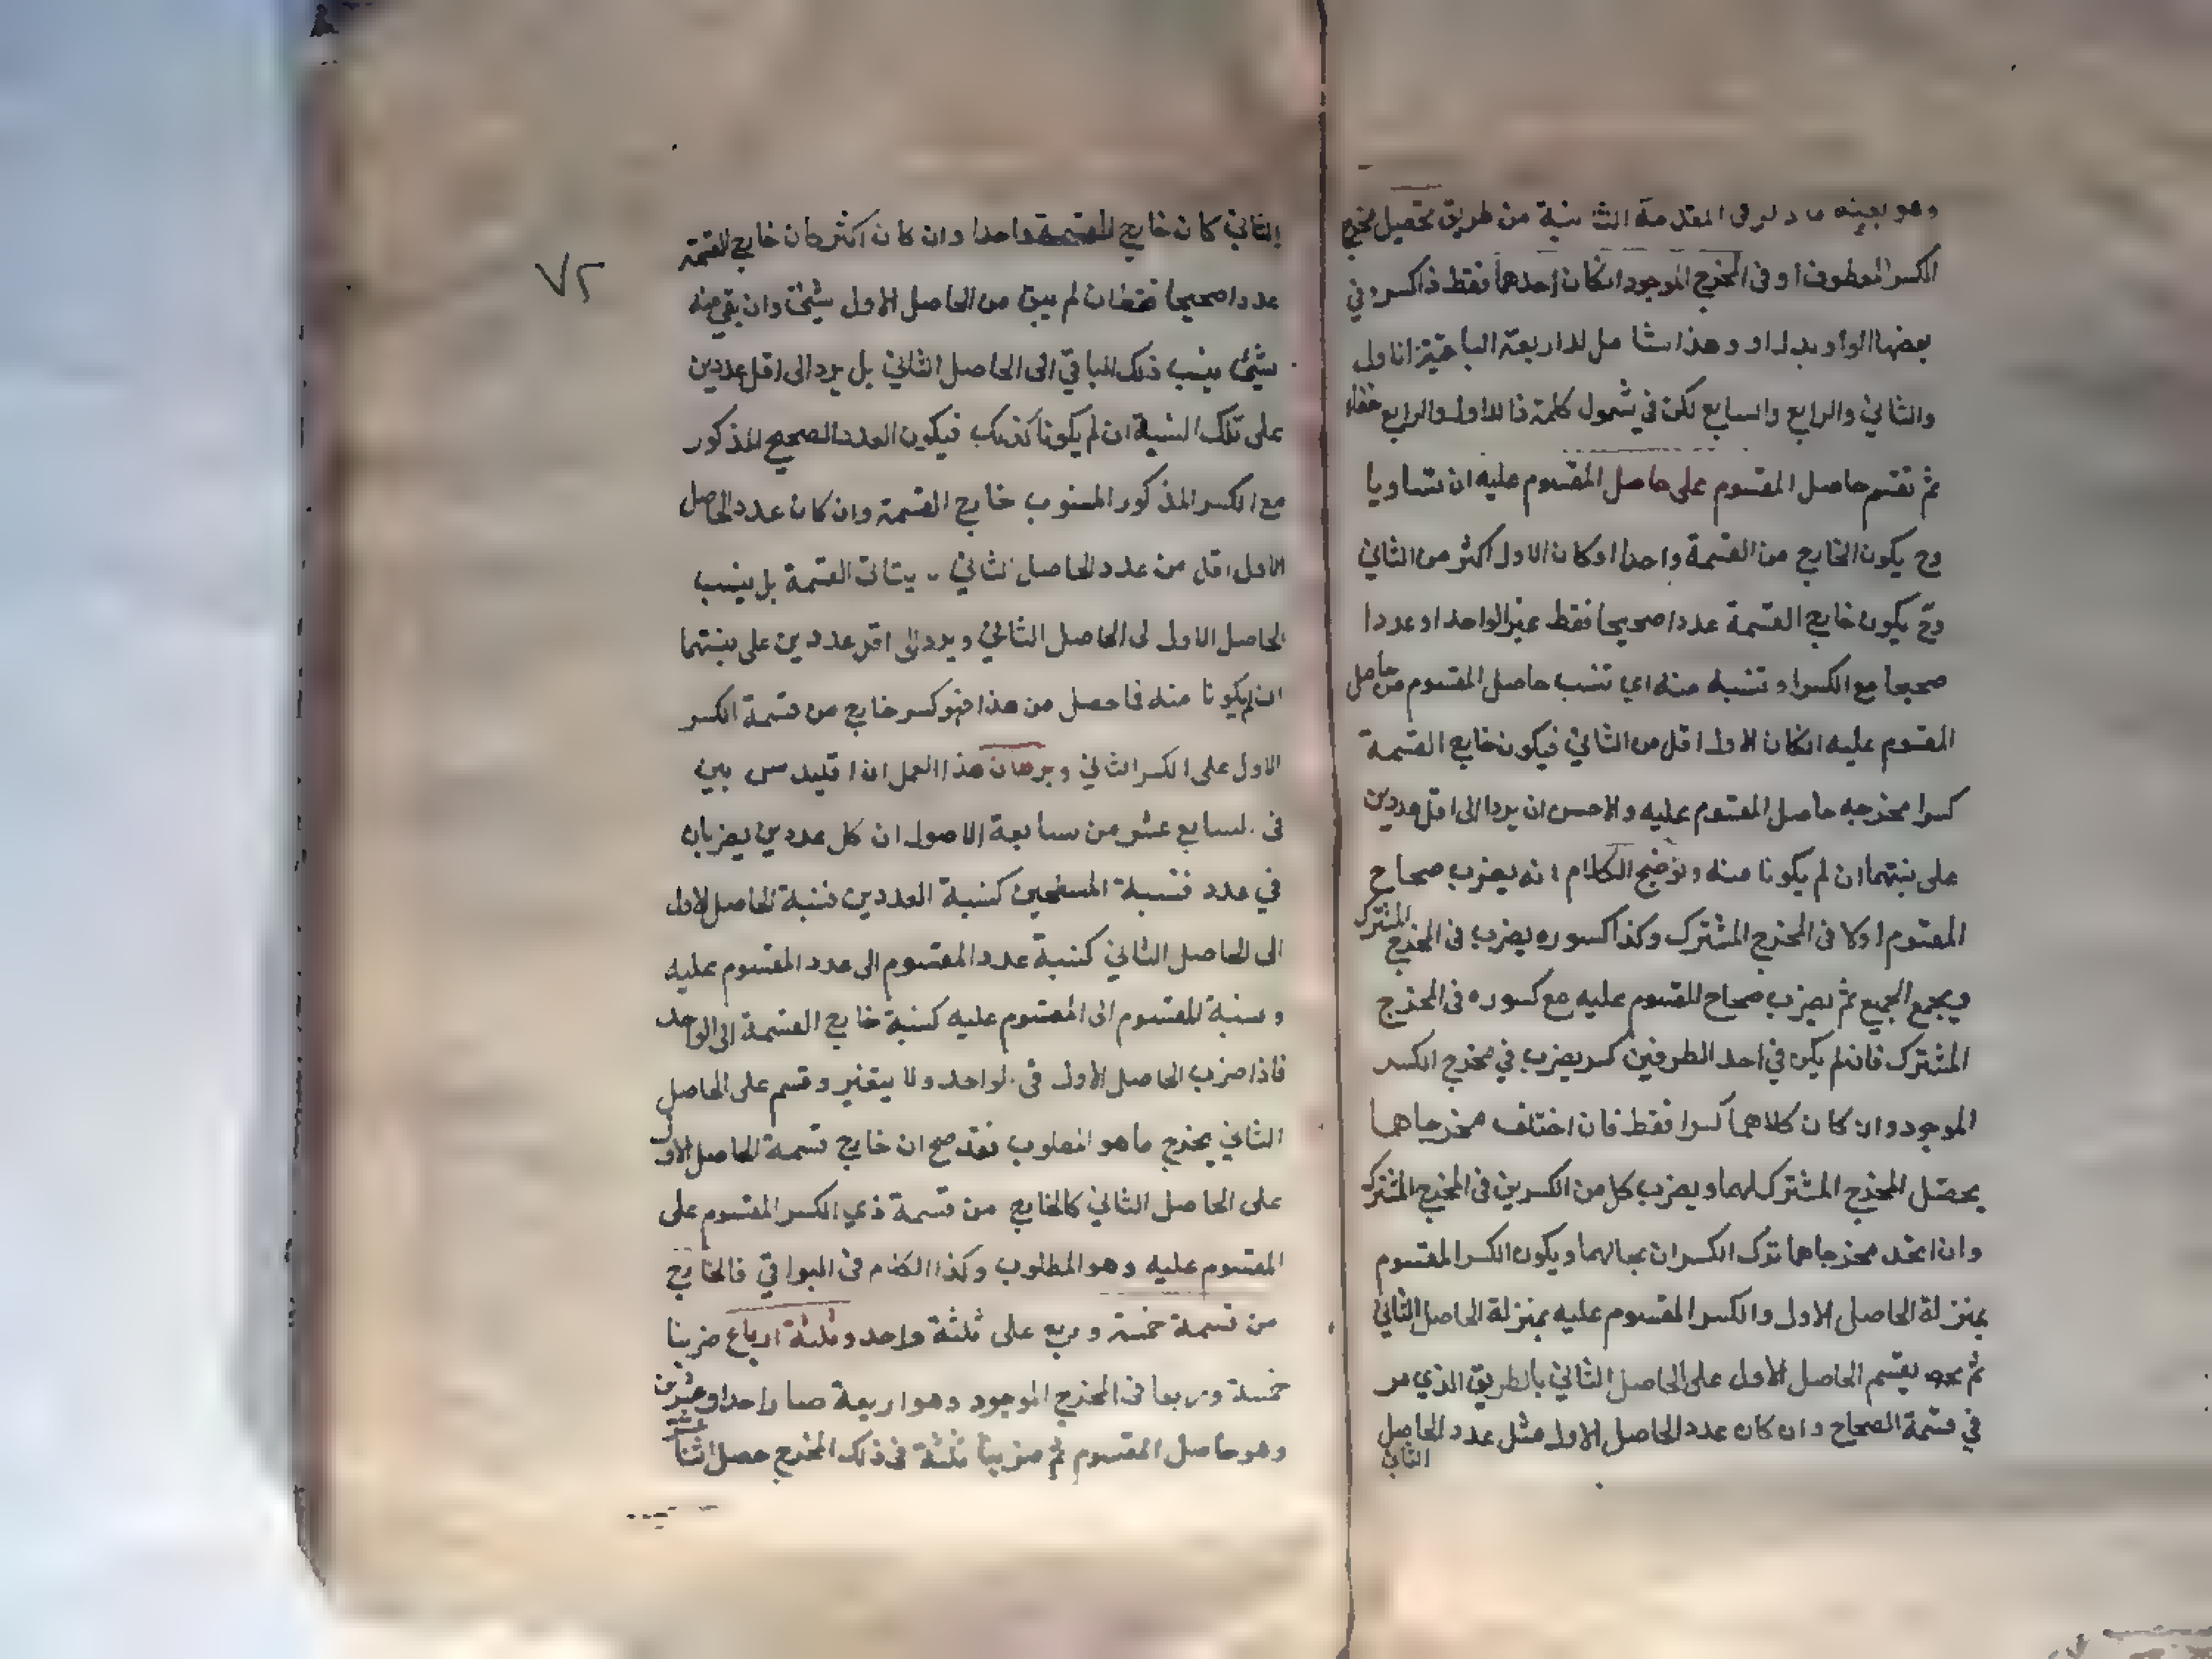 وهو بعينه ما ذكر فى المقدمة الثانية من طريق تحصيل مخرج
الكسر المعطوف او فى المخرج الموجود انكان احدهما فقط ذاكسر وفي
بعضها الواو بدل او وهذا شامل للاربعة الباقية الاول
والثاني والرابع والسابع لكن في شمول كلمة ذا للاول والرابع خفاء
ثم تقسم حاصل المقسوم على حاصل المقسوم عليه ان تساويا
وح يكون الخارج من القسمة واحدا او كان الاول اكثر من الثاني
وح يكون خارج القسمة عددا صحيحا فقط غير الواحد او عددا
صحيحا مع الكسر او تنسبه منه اي تنسب حاصل المقسوم من حاصل
المقسوم عليه انكان الاول اقل من الثاني فيكون خارج القسمة
كسرا مخرجه حاصل المقسوم عليه والاحسن ان يردا الى اقل عددين
على نسبتهما ان لم يكونا منه وتوضيح الكلام انه يضرب صحاح
المقسوم اولا فى المخرج المشترك وكذا كسوره يضرب فى المخرج المشترك
ويجمع الجميع ثم يضرب صحاح المقسوم عليه مع كسوره فى المخرج
المشترك فان لم يكن في احد الطرفين كسر يضرب في مخرج الكسر
الموجود وان كان كلاهما كسرا فقط فان اختلف مخرجاهما
يحصل المخرج المشترك لهما ويضرب كل من الكسرين فى المخرج المشترك
وان اتحد مخرجاهما ترك الكسران بحالهما ويكون الكسر المقسوم
بمنزلة الحاصل الاول والكسر المقسوم عليه بمنزلة الحاصل الثاني
ثم يقسم الحاصل الاول على الحاصل الثاني بالطريق الذي مر
في قسمة الصحاح وان كان عدد الحاصل الاول مثل عدد الحاصل
الثاني
٧٢
الثاني كان خارج القسمة واحدا وان كان اكثر كان خارج القسمة
عددا صحيحا فقط ان لم يبق من الحاصل الاول شيئ وان بقي منه
شيئ ينسب ذلك الباقي الى الحاصل الثاني بل يرد الى اقل عددين
على تلك النسبة ان لم يكونا كذلك فيكون العدد الصحيح المذكور
مع الكسر المذكور المنسوب خارج القسمة وان كان عدد الحاصل
الاول اقل من عدد الحاصل الثاني يتأتى القسمة بل ينسب
الحاصل الاول الى الحاصل الثاني ويرد الى اقل عددين على نسبتهما
ان لم يكونا منه فما حصل من هذا فهو كسر خارج من قسمة الكسر
الاول على الكسر الثاني وبرهان هذا العمل ان اقليدس بين
فى السابع عشر من سابعة الاصول ان كل عددين يضربان
في عدد فنسبة المسطحين كنسبة العددين فنسبة الحاصل الاول
الى الحاصل الثاني كنسبة عدد المقسوم الى عدد المقسوم عليه
ونسبة المقسوم الى المقسوم عليه كنسبة خارج القسمة الى الواحد
فاذا ضرب الحاصل الاول فى الواحد ولا يتغير وقسم على الحاصل
الثاني يخرج ما هو المطلوب فقد صح ان خارج قسمة الحاصل الاول
على الحاصل الثاني كالخارج من قسمة ذي الكسر المقسوم على
المقسوم عليه وهو المطلوب وكذا الكلام فى البواقي فالخارج
من قسمة خمسة وربع على ثلثة واحد وثلثة ارباع ضربنا
خمسة وربعا فى المخرج الموجود وهو اربعة صار احدا وعشرين
وهو حاصل المقسوم ثم ضربنا ثلثة فى ذلك المخرج حصل اثنا عشر